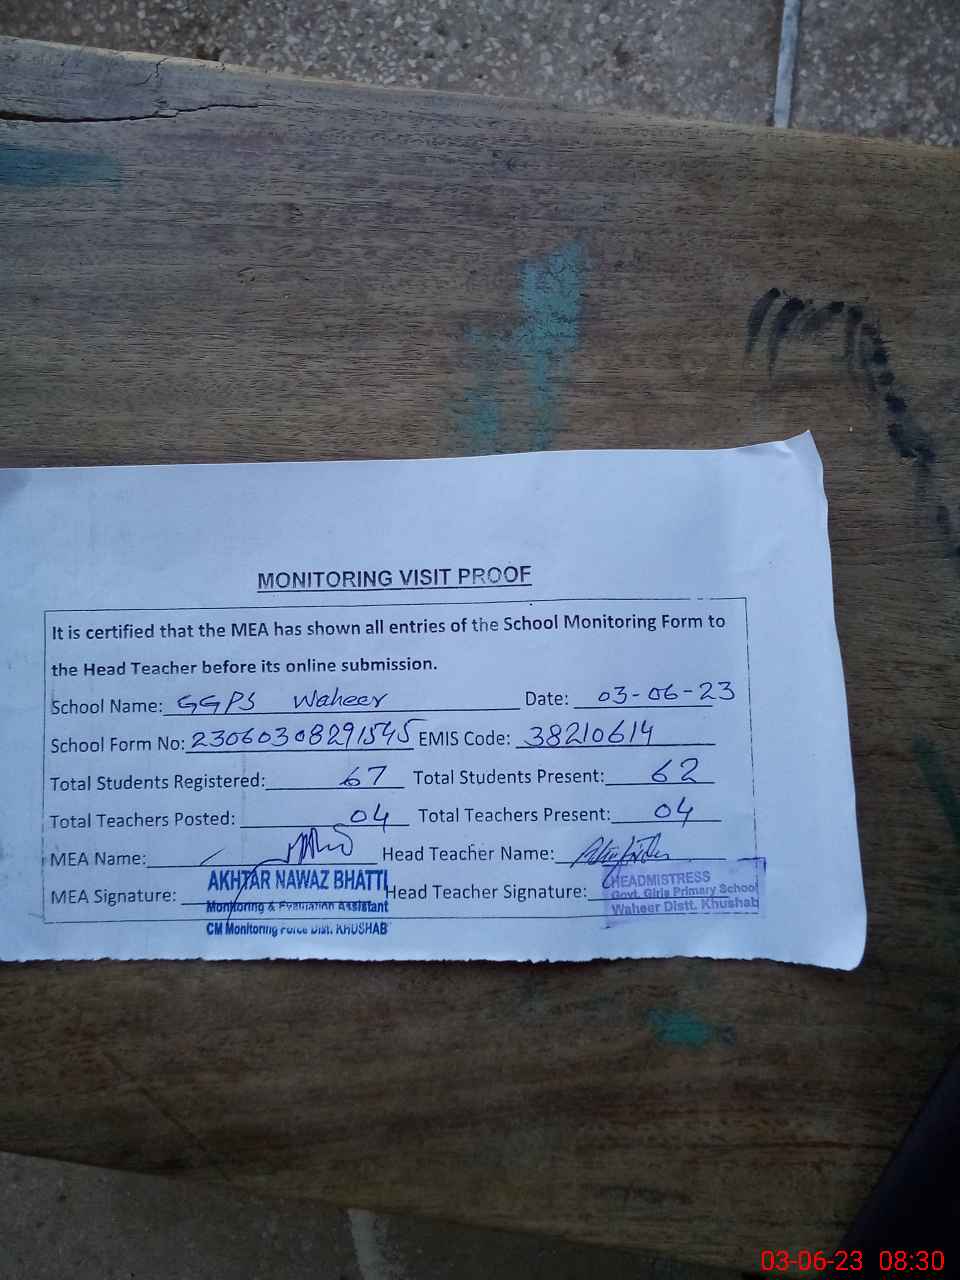 MONITORING VISIT PROOF
It is certified that the MEA has shown all entries of the School Monitoring Form to
the Head Teacher before its online submission.
School Name: GGPS Waheer Date: 03-06-23
School Form No: 23060308291545 EMIS Code: 38210614
Total Students Registered: 67 Total Students Present: 62
Total Teachers Posted: 04 Total Teachers Present: 04
MEA Name: Head Teacher Name:
MEA Signature: Head Teacher Signature:
AKHTAR NAWAZ BHATTI
Monitoring & Evaluation Assistant
CM Monitoring Force Dist. KHUSHAB
HEADMISTRESS
Govt. Girls Primary School
Waheer Distt. Khushab
03-06-23 08:30